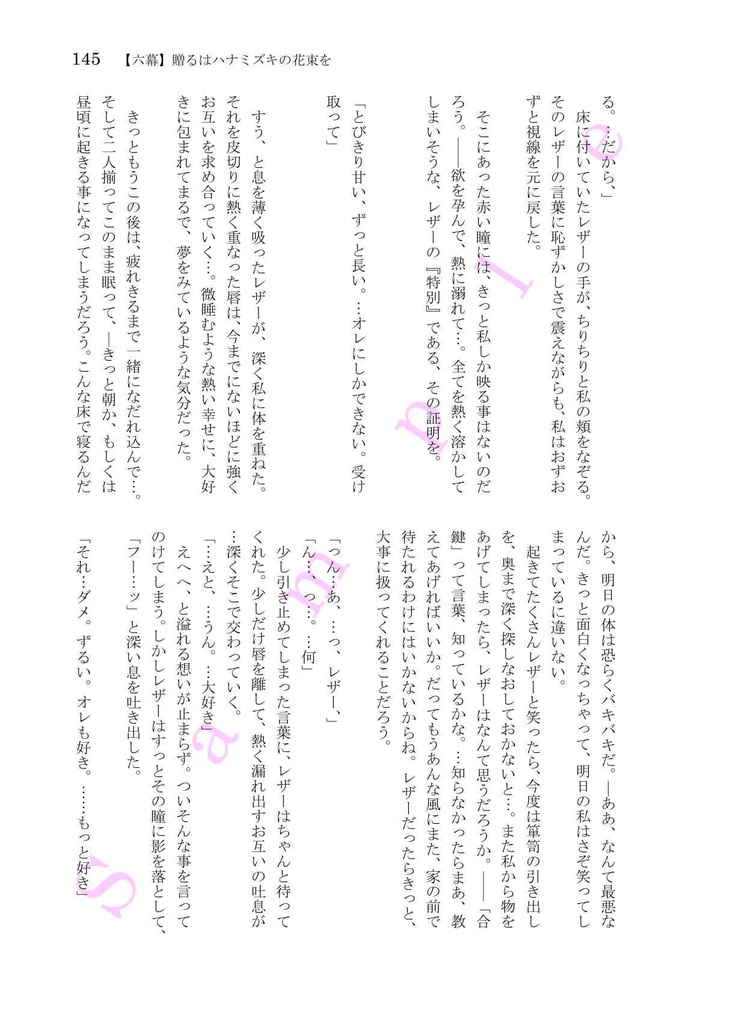 145 【六幕】贈るはハナミズキの花束を
る。…だから、」
　床に付いていたレザーの手が、ちりちりと私の頬をなぞる。
そのレザーの言葉に恥ずかしさで震えながらも、私はおずお
ずと視線を元に戻した。
　そこにあった赤い瞳には、きっと私しか映る事はないのだ
ろう。――欲を孕んで、熱に溺れて…。全てを熱く溶かして
しまいそうな、レザーの『特別』である、その証明を。
「とびきり甘い、ずっと長い。…オレにしかできない。受け
取って」
　すう、と息を薄く吸ったレザーが、深く私に体を重ねた。
それを皮切りに熱く重なった唇は、今までにないほどに強く
お互いを求め合っていく…。微睡むような熱い幸せに、大好
きに包まれてまるで、夢をみているような気分だった。
　きっともうこの後は、疲れきるまで一緒になだれ込んで…。
そして二人揃ってこのまま眠って、―きっと朝か、もしくは
昼頃に起きる事になってしまうだろう。こんな床で寝るんだ
から、明日の体は恐らくバキバキだ。―ああ、なんて最悪な
んだ。きっと面白くなっちゃって、明日の私はさぞ笑ってし
まっているに違いない。
　起きてたくさんレザーと笑ったら、今度は箪笥の引き出し
を、奥まで深く探しなおしておかないと…。また私から物を
あげてしまったら、レザーはなんて思うだろうか。――「合
鍵」って言葉、知っているかな。…知らなかったらまあ、教
えてあげればいいか。だってもうあんな風にまた、家の前で
待たれるわけにはいかないからね。レザーだったらきっと、
大事に扱ってくれることだろう。
「っん…あ、…っ、レザー、」
「ん…、っ…。…何」
　少し引き止めてしまった言葉に、レザーはちゃんと待って
くれた。少しだけ唇を離して、熱く漏れ出すお互いの吐息が
…深くそこで交わっていく。
「…えと、…うん。…大好き」
　えへへ、と溢れる想いが止まらず。ついそんな事を言って
のけてしまう。しかしレザーはすっとその瞳に影を落として、
「フー…ッ」と深い息を吐き出した。
「それ…ダメ。ずるい。オレも好き。……もっと好き」
Sample